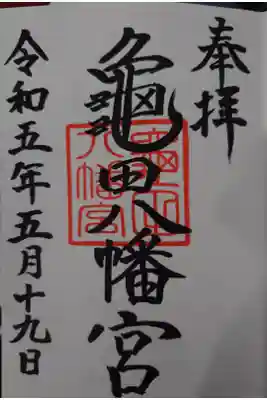 奉拝
龜田八幡宮
龜田八幡宮
令和五年五月十九日